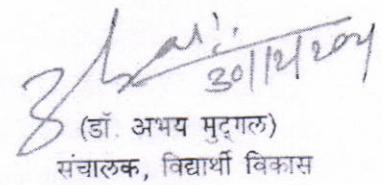 30/12/2021
(डॉ. अभय मुद्गल)
संचालक, विद्यार्थी विकास